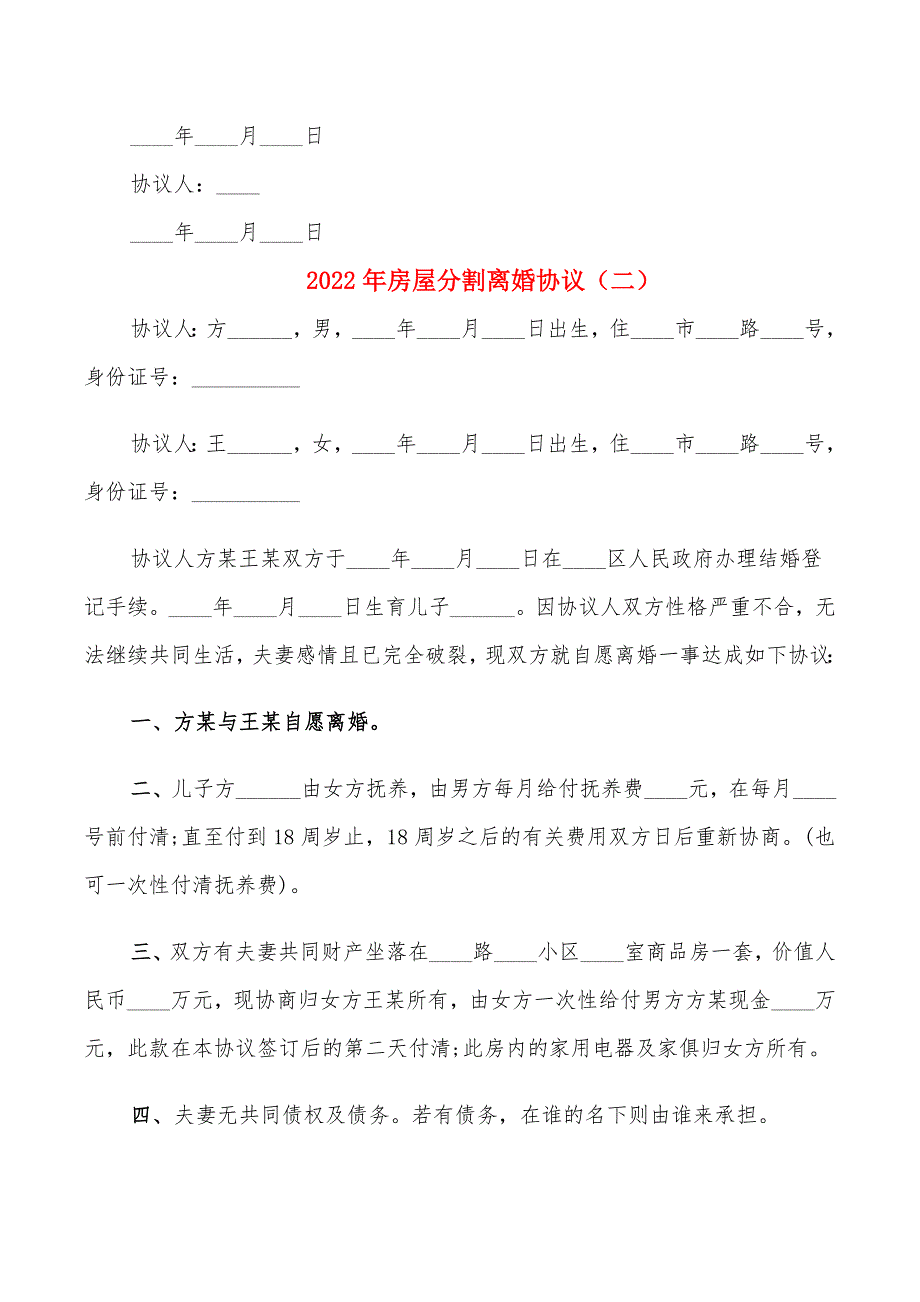 ____年____月____日
协议人：____
____年____月____日
2022年房屋分割离婚协议（二）
协议人：方______，男，____年____月____日出生，住____市____路____号，
身份证号：__________
协议人：王______，女，____年____月____日出生，住____市____路____号，
身份证号：__________
协议人方某王某双方于____年____月____日在____区人民政府办理结婚登
记手续。____年____月____日生育儿子______。因协议人双方性格严重不合，无
法继续共同生活，夫妻感情且已完全破裂，现双方就自愿离婚一事达成如下协议：
一、方某与王某自愿离婚。
二、儿子方______由女方抚养，由男方每月给付抚养费____元，在每月____
号前付清;直至付到18周岁止，18周岁之后的有关费用双方日后重新协商。(也
可一次性付清抚养费)。
三、双方有夫妻共同财产坐落在____路____小区____室商品房一套，价值人
民币____万元，现协商归女方王某所有，由女方一次性给付男方方某现金____万
元，此款在本协议签订后的第二天付清;此房内的家用电器及家俱归女方所有。
四、夫妻无共同债权及债务。若有债务，在谁的名下则由谁来承担。